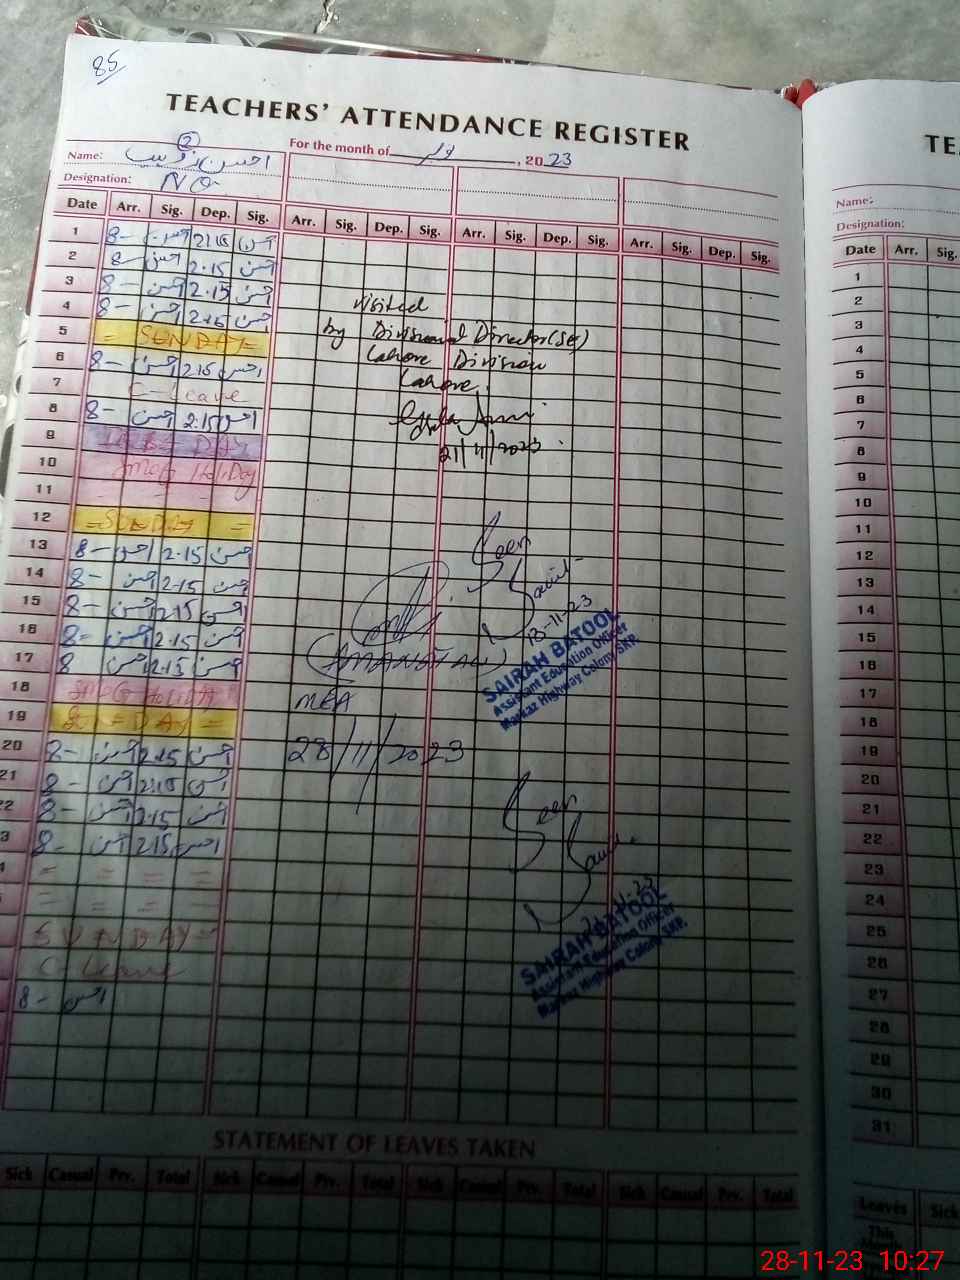 85
TEACHERS' ATTENDANCE REGISTER
TE
②
Name: احسن
For the month of , 2023
Designation: NQ
Date Arr. Sig. Dep. Sig. Arr. Sig. Dep. Sig. Arr. Sig. Dep. Sig. Arr. Sig. Dep. Sig.
1 8- احسن 2.15 احسن
2 8- احسن 2.15 احسن
3 8- احسن 2.15 احسن
4 8- احسن 2.15 احسن
visited
5 = SUNDAY =
by Divisional Director (SE)
6 8- احسن 2.15 احسن
Lahore Division
7 C-Leave
Lahore.
8 8- احسن 2.15 احسن
9 IQBAL DAY
21/11/2023
10 SMOG Holiday
11
12 = SUNDAY =
13 8- احسن 2.15 احسن
14 8- احسن 2.15 احسن
15 8- احسن 2.15 احسن
Seen
13-11-23
16 8- احسن 2.15 احسن
17 8 احسن 2.15 احسن
SAIRAH BATOOL
Assistant Education Officer
Markaz Highway Colony SKP.
18 SMOG Holiday
MEA
19 SUNDAY =
20 8- احسن 2.15 احسن
28/11/2023
21 8- احسن 2.15 احسن
22 8- احسن 2.15 احسن
3 8- احسن 2.15 احسن
Seen
4 = = = =
= = = =
SUNDAY =
SAIRAH BATOOL
Assistant Education Officer
Markaz Highway Colony SKP.
C-Leave
8- احسن
STATEMENT OF LEAVES TAKEN
Sick Casual Prv. Total Sick Casual Prv. Total Sick Casual Prv. Total Sick Casual Prv. Total
Name:
Designation:
Date Arr. Sig.
1
2
3
4
5
6
7
8
9
10
11
12
13
14
15
16
17
18
19
20
21
22
23
24
25
26
27
28
29
30
31
Leaves Sick
This
28-11-23 10:27